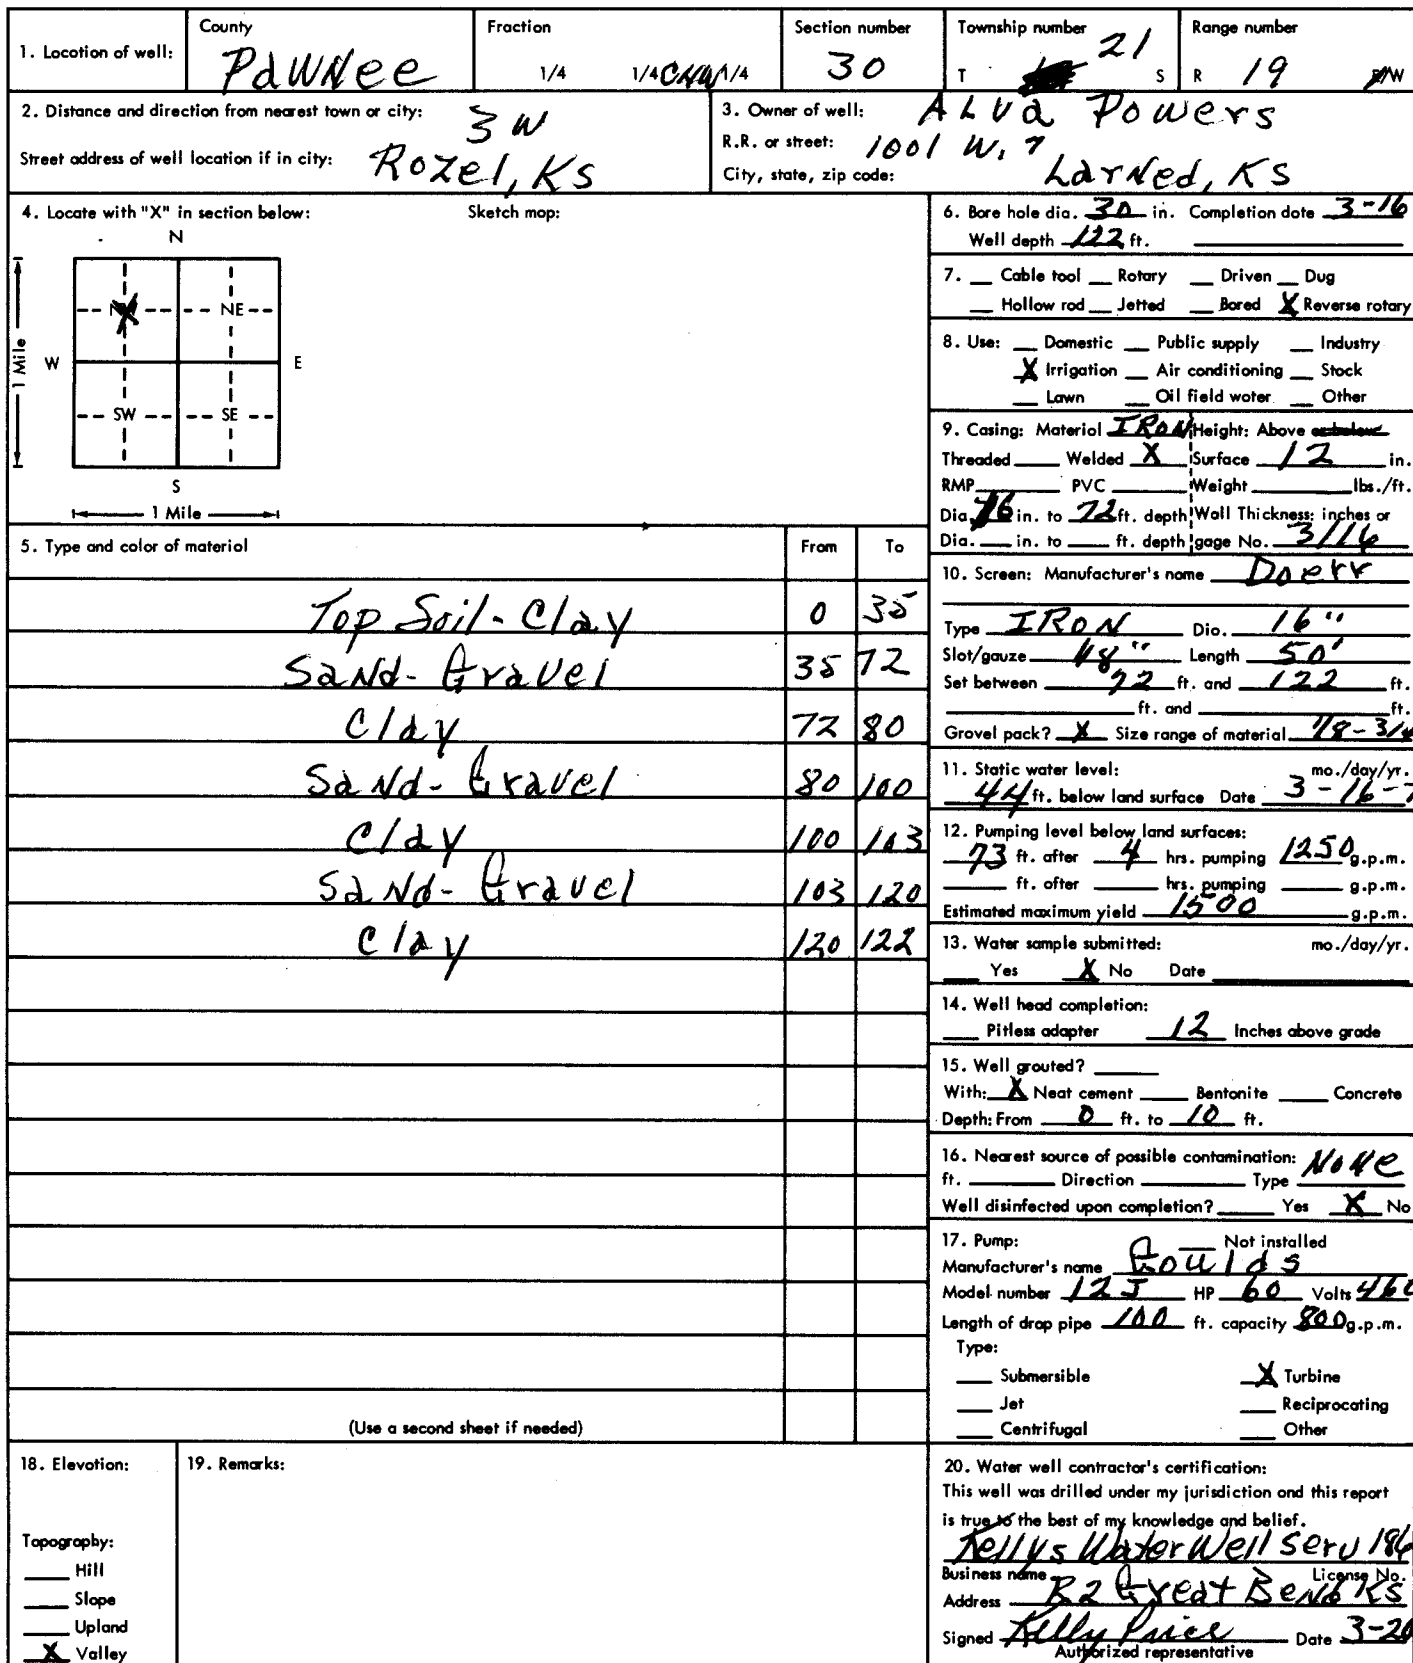 County Fraction Section number Township number Range number
1. Location of well: Pawnee 1/4 1/4 CNW 1/4 30 T 21 S R 19 E/W
2. Distance and direction from nearest town or city: 3 W
Street address of well location if in city: Rozel, Ks
3. Owner of well: ALva Powers
R.R. or street: 1001 W. 7
City, state, zip code: Larned, KS
4. Locate with "X" in section below: Sketch map:
N
NW NE
1 Mile W E
SW SE
S
1 Mile
5. Type and color of material From To
Top Soil - Clay 0 35
Sand - Gravel 35 72
Clay 72 80
Sand - Gravel 80 100
Clay 100 103
Sand - Gravel 103 120
Clay 120 122
(Use a second sheet if needed)
6. Bore hole dia. 30 in. Completion date 3-16
Well depth 122 ft.
7. Cable tool Rotary Driven Dug
Hollow rod Jetted Bored X Reverse rotary
8. Use: Domestic Public supply Industry
X Irrigation Air conditioning Stock
Lawn Oil field water Other
9. Casing: Material IRON Height: Above or below
Threaded Welded X Surface 12 in.
RMP PVC Weight lbs./ft.
Dia. 16 in. to 72 ft. depth Wall Thickness: inches or
Dia. in. to ft. depth gage No. 3/16
10. Screen: Manufacturer's name Doerr
Type IRON Dia. 16"
Slot/gauze 1/8" Length 50'
Set between 72 ft. and 122 ft.
ft. and ft.
Gravel pack? X Size range of material 1/8 - 3/4
11. Static water level: mo./day/yr.
44 ft. below land surface Date 3-16-7
12. Pumping level below land surfaces:
73 ft. after 4 hrs. pumping 1250 g.p.m.
ft. after hrs. pumping g.p.m.
Estimated maximum yield 1500 g.p.m.
13. Water sample submitted: mo./day/yr.
Yes X No Date
14. Well head completion:
Pitless adapter 12 Inches above grade
15. Well grouted?
With: X Neat cement Bentonite Concrete
Depth: From 0 ft. to 10 ft.
16. Nearest source of possible contamination: None
ft. Direction Type
Well disinfected upon completion? Yes X No
17. Pump: Not installed
Manufacturer's name Goulds
Model number 12J HP 60 Volts 460
Length of drop pipe 100 ft. capacity 800 g.p.m.
Type:
Submersible X Turbine
Jet Reciprocating
Centrifugal Other
18. Elevation:
Topography:
Hill
Slope
Upland
X Valley
19. Remarks:
20. Water well contractor's certification:
This well was drilled under my jurisdiction and this report
is true to the best of my knowledge and belief.
Kellys Water Well Serv 186
Business name License No.
Address R2 Great Bend Ks
Signed Kelly Price Date 3-20
Authorized representative